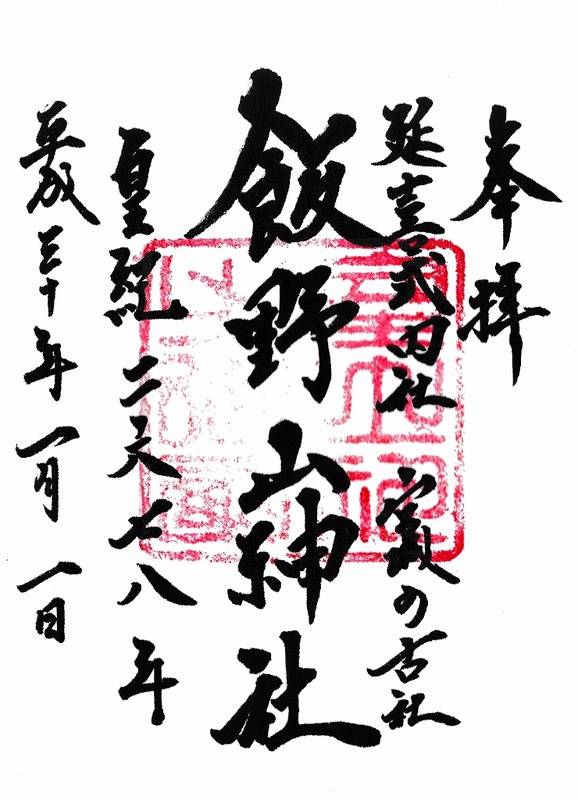 奉拝
延喜式内社 宮城の古社
飯野山神社
皇紀二六七八年
平成三十年一月一日